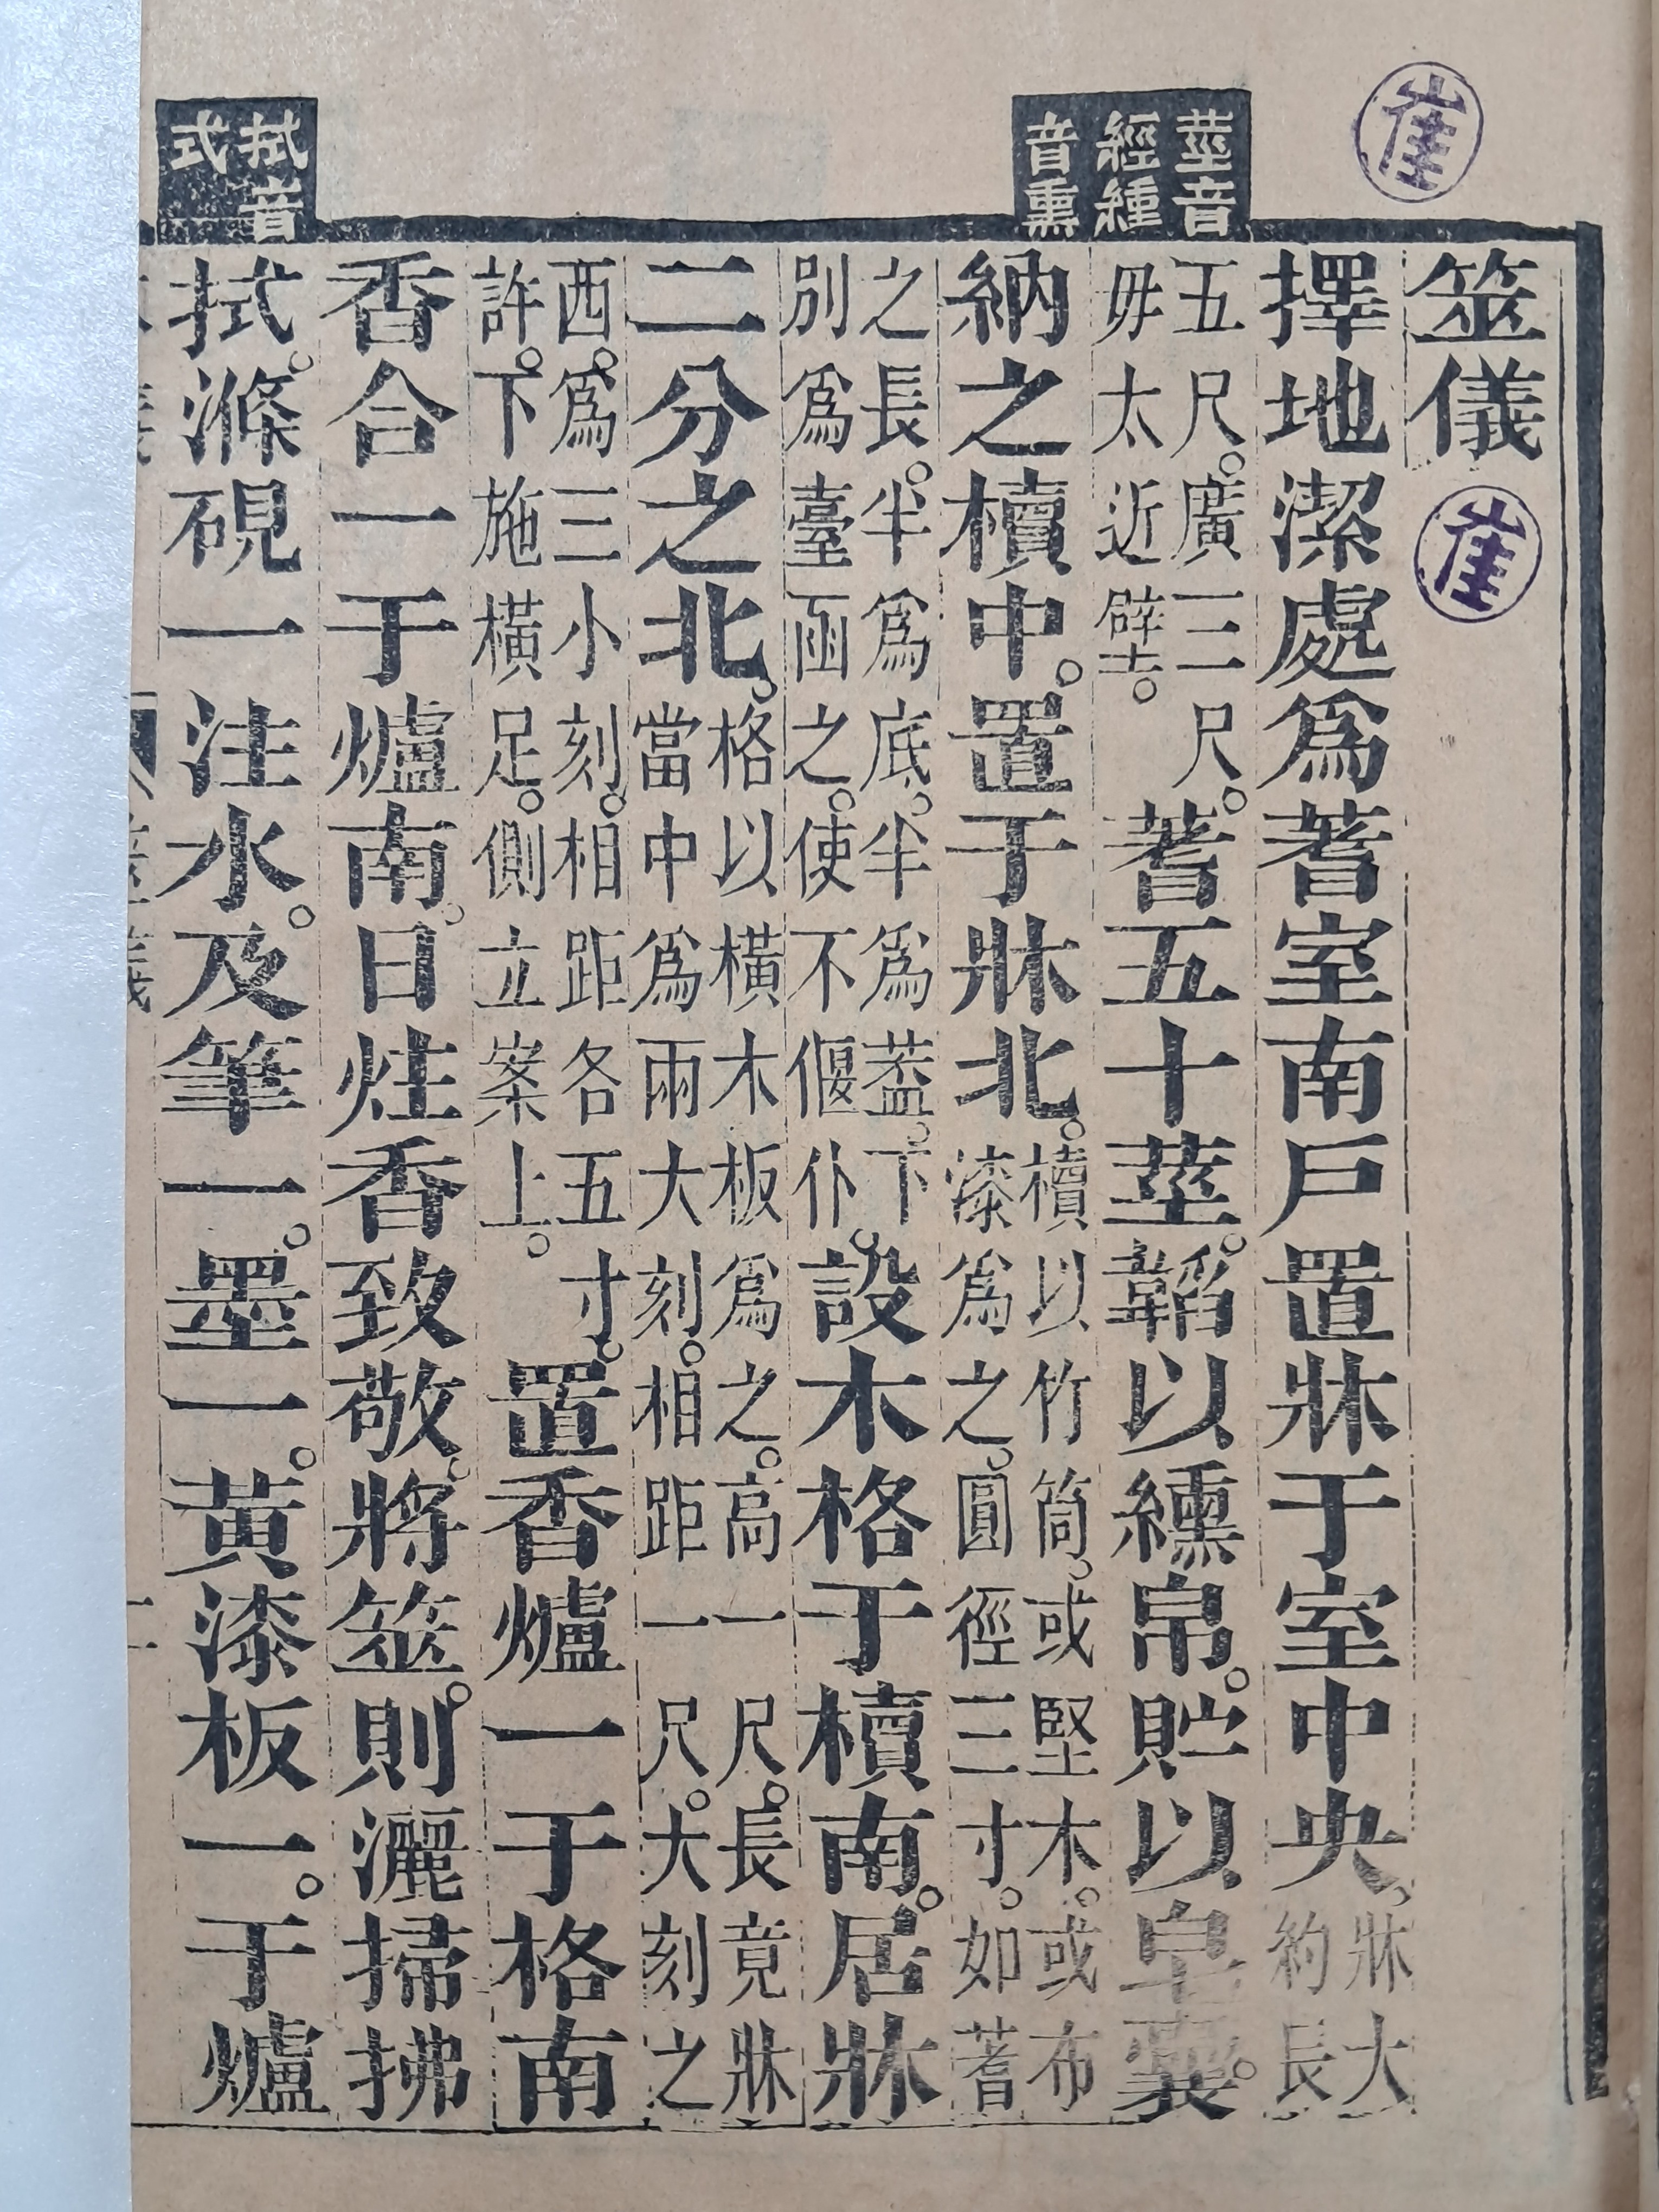 崔
莖音
經纁
音熏
拭音
式
筮儀
崔
擇地潔處爲蓍室南戶置牀于室中央。牀大
約長
五尺。廣三尺。
毋太近壁。
蓍五十莖。韜以纁帛。貯以皁囊。
納之櫝中。置于牀北。櫝以竹筒。或堅木。或布
漆爲之。圓徑三寸。如蓍
之長。半爲底。半爲蓋。下
別爲臺函之。使不偃仆。
設木格于櫝南。居牀
二分之北。格以橫木板爲之。高一尺。長竟牀
當中爲兩大刻。相距一尺。大刻之
西。爲三小刻。相距各五寸。
許。下施橫足。側立案上。
置香爐一于格南
香合一于爐南。日炷香致敬。將筮。則灑掃拂
拭。滌硯一注水。及筆一。墨一。黃漆板一。于爐